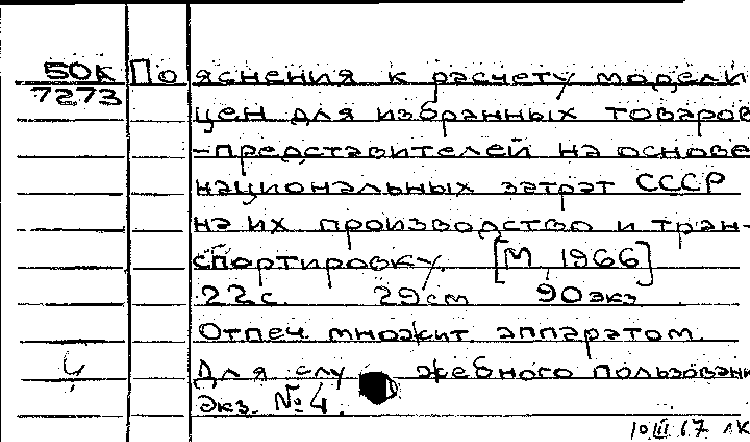 50К Пояснения к расчету модели
7273 цен для избранных товаров
-представителей на основе
национальных затрат СССР
на их производство и тран-
спортировку. [М, 1966]
22с. 29см 90экз.
Отпеч. множит. аппаратом.
Для служебного пользовани
Экз. №4.
10 III 67